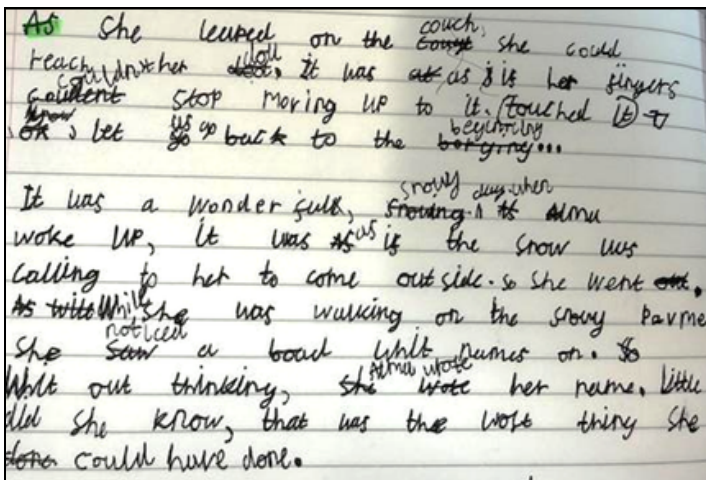 As she leaned on the couch, she could
reach her doll. It was as if is her fingers
couldn't stop moving up to it. (touched it)
now, let us go back to the beginning...
It was a wonderfull, snowy day when Alma
woke up, it was as if the snow was
calling to her to come outside. so she went.
While she was walking on the snowy Pavme
She noticed a boad whit names on.
Whit out thinking, Alma wrote her name. Little
did she know, that was the wost thing she
could have done.